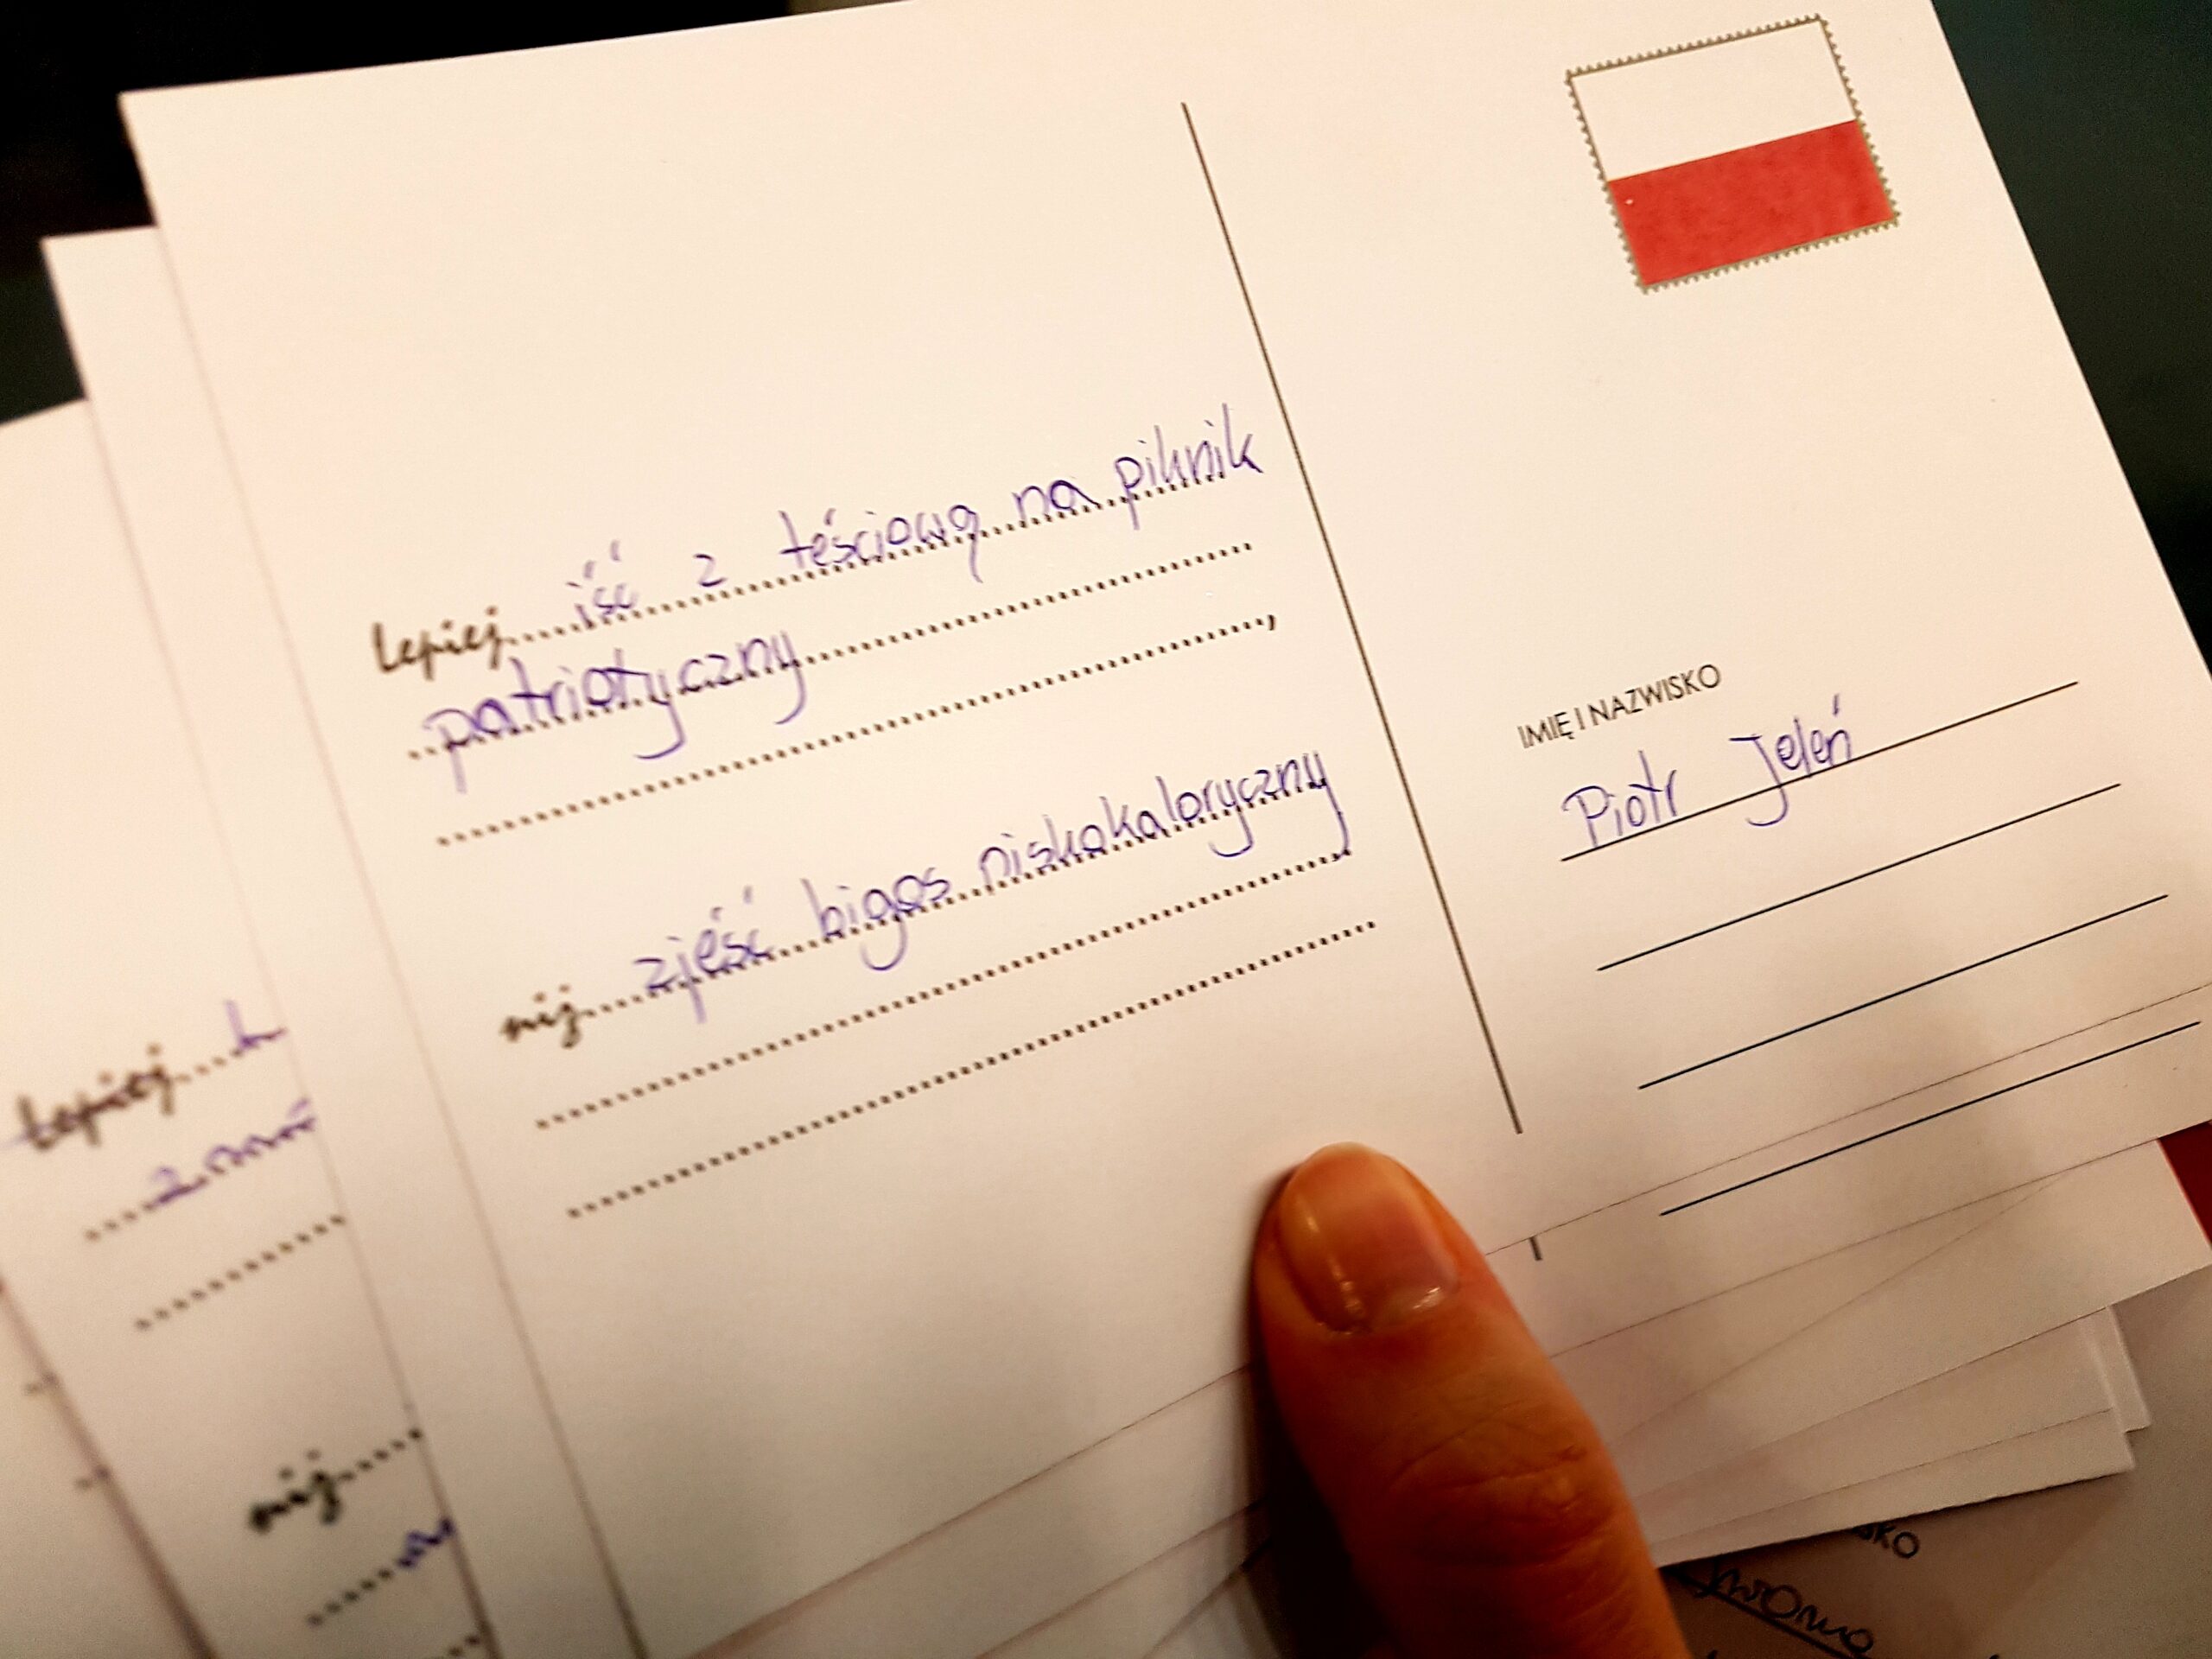 lepiej iść z teściową na piknik
patriotyczny
niż zjeść bigos niskokaloryczny
IMIĘ I NAZWISKO
Piotr Jeleń
lepiej
niż